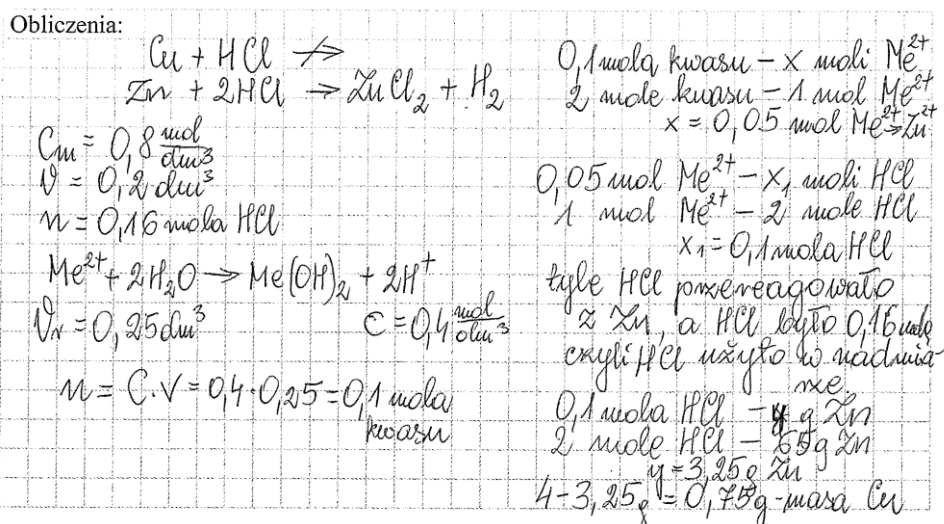 Obliczenia:
Cu + HCl ↛
Zn + 2HCl → ZnCl₂ + H₂
Cm = 0,8 mol/dm³
V = 0,2 dm³
n = 0,16 mola HCl
Me²⁺ + 2H₂O → Me(OH)₂ + 2H⁺
Vr = 0,25 dm³ C = 0,4 mol/dm³
n = C·V = 0,4·0,25 = 0,1 mola
kwasu
0,1 mola kwasu – x moli Me²⁺
2 mole kwasu – 1 mol Me²⁺
x = 0,05 mol Me²⁺ → Zn²⁺
0,05 mol Me²⁺ – x₁ moli HCl
1 mol Me²⁺ – 2 mole HCl
x₁ = 0,1 mola HCl
tyle HCl przereagowało
z Zn, a HCl było 0,16 mola
czyli HCl użyto w nadmia-
rze
0,1 mola HCl – y g Zn
2 mole HCl – 65g Zn
y = 3,25g Zn
4 - 3,25g = 0,75g - masa Cu